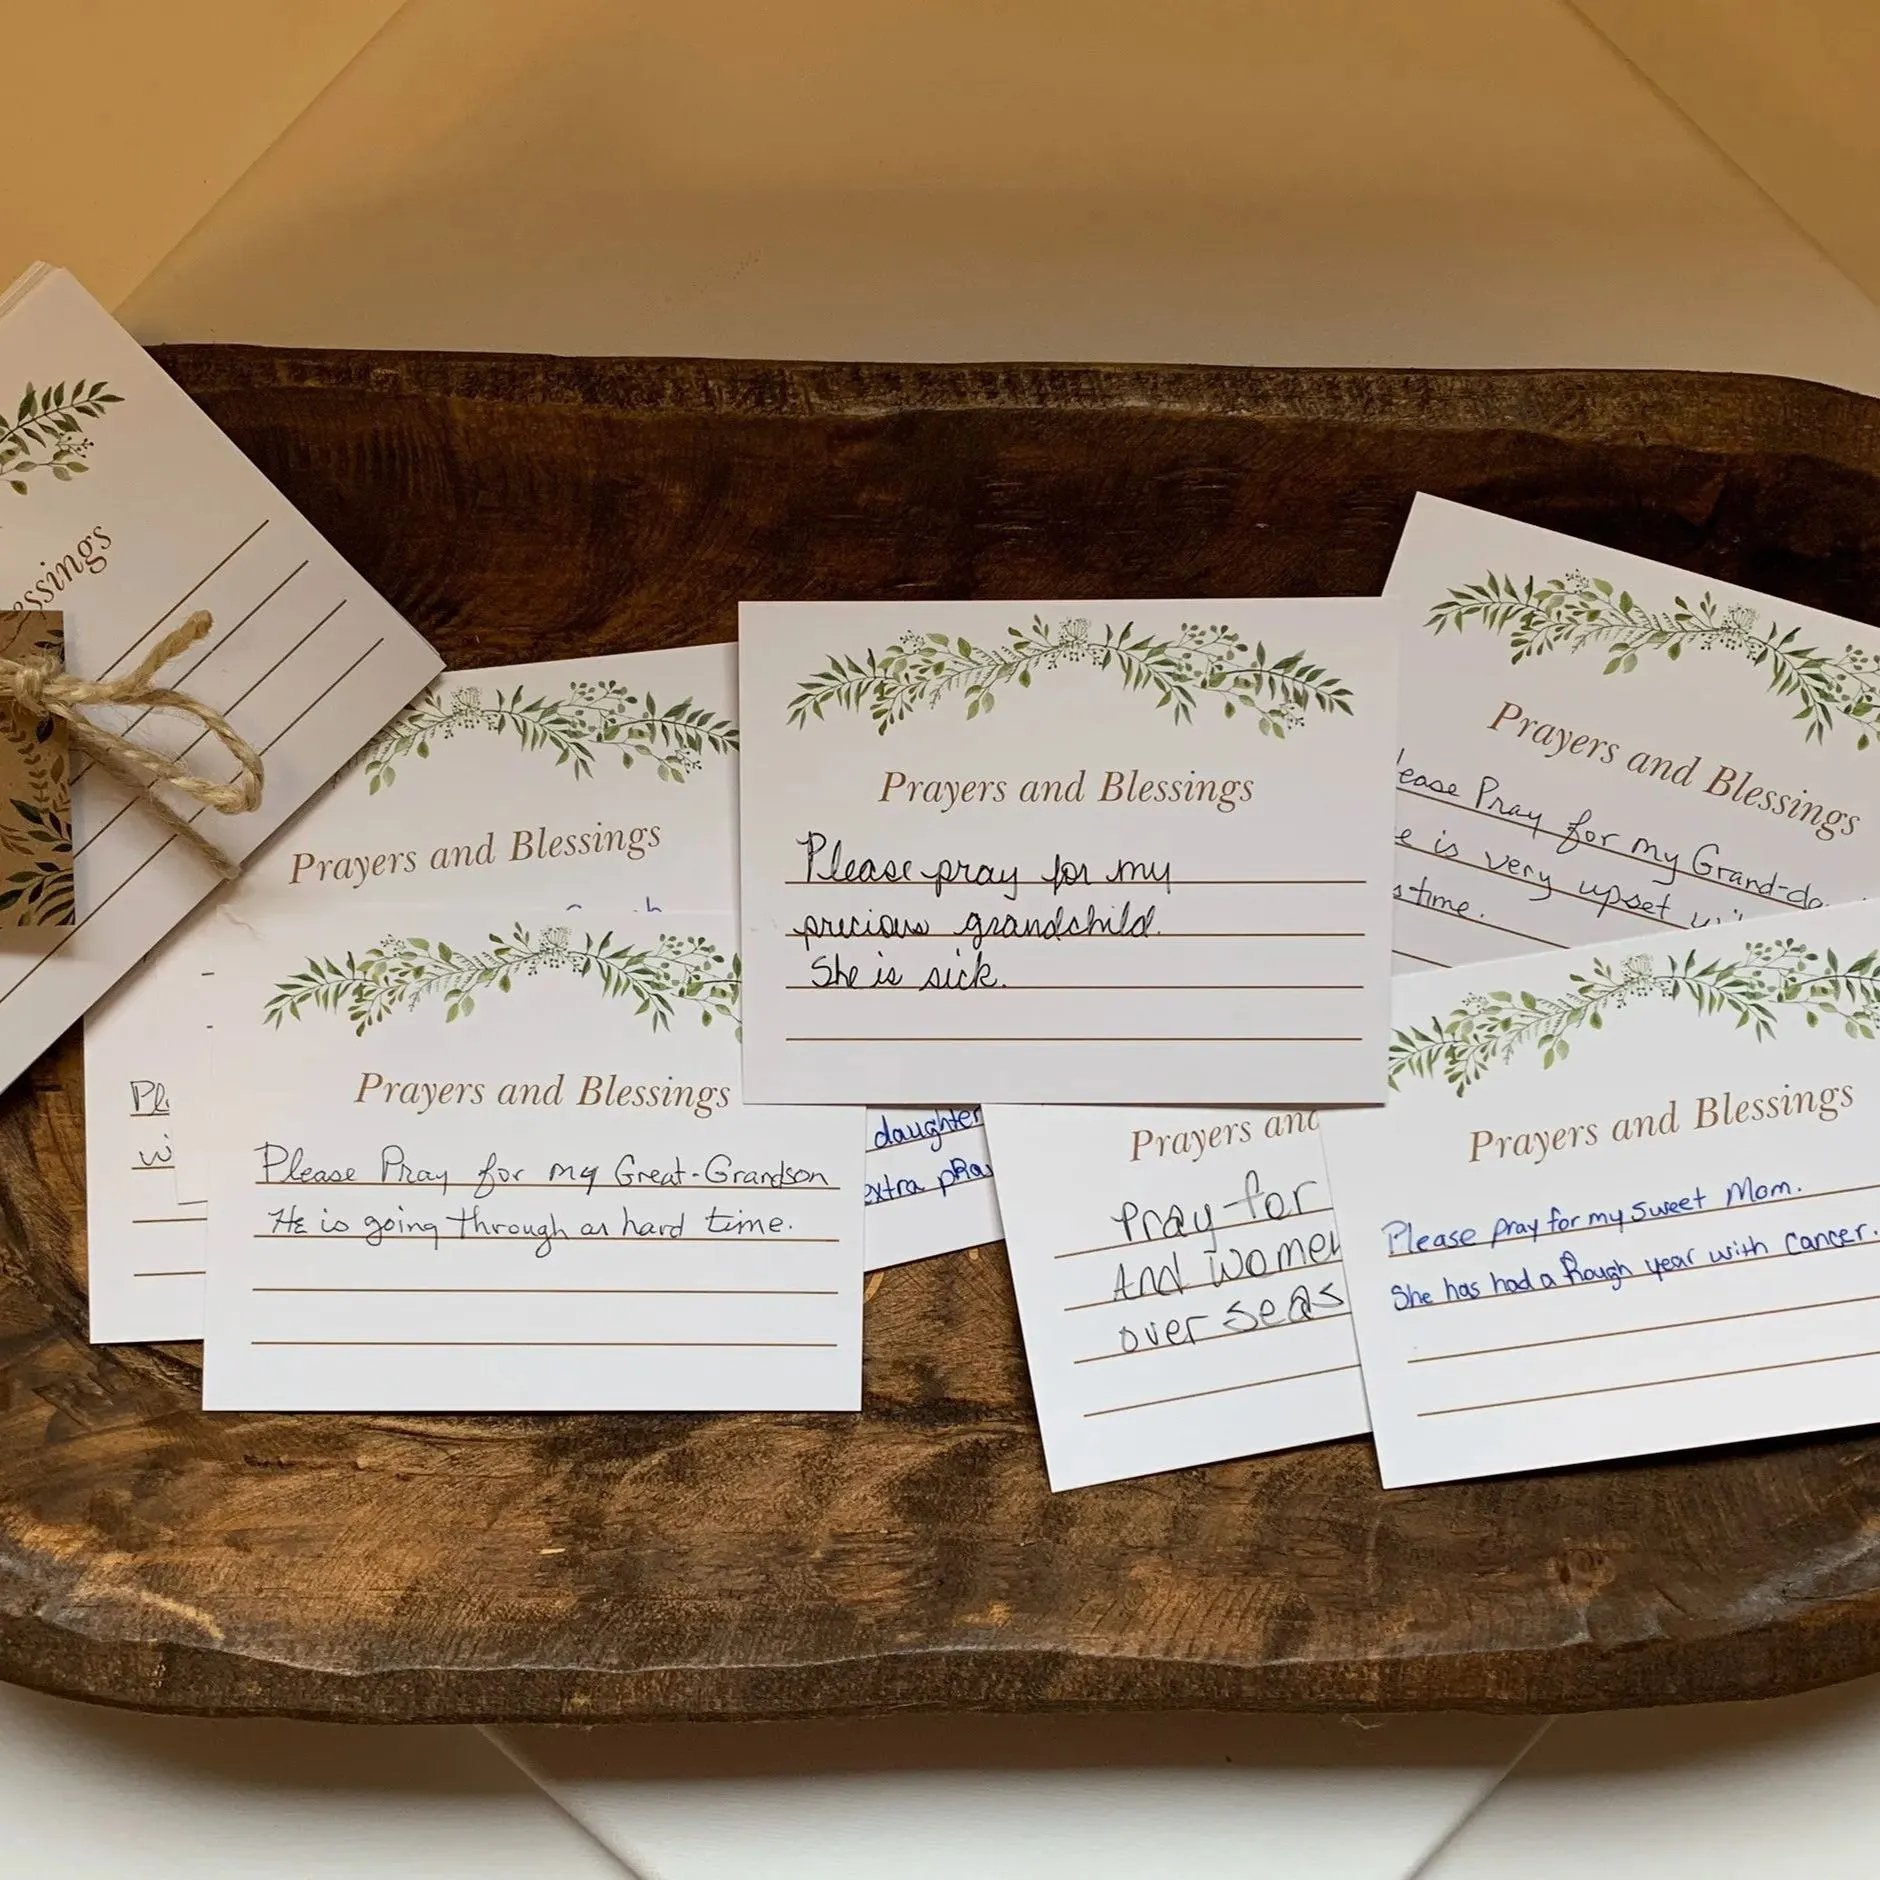 Prayers and Blessings
Please pray for my
precious grandchild.
She is sick.
Prayers and Blessings
Please Pray for my Grand-
is very upset
time.
Prayers and Blessings
Prayers and Blessings
Please Pray for my Great-Grandson
He is going through an hard time.
daughter
extra
Prayers and
Pray for
And women
over seas
Prayers and Blessings
Please pray for my sweet Mom.
She has had a Rough year with cancer.